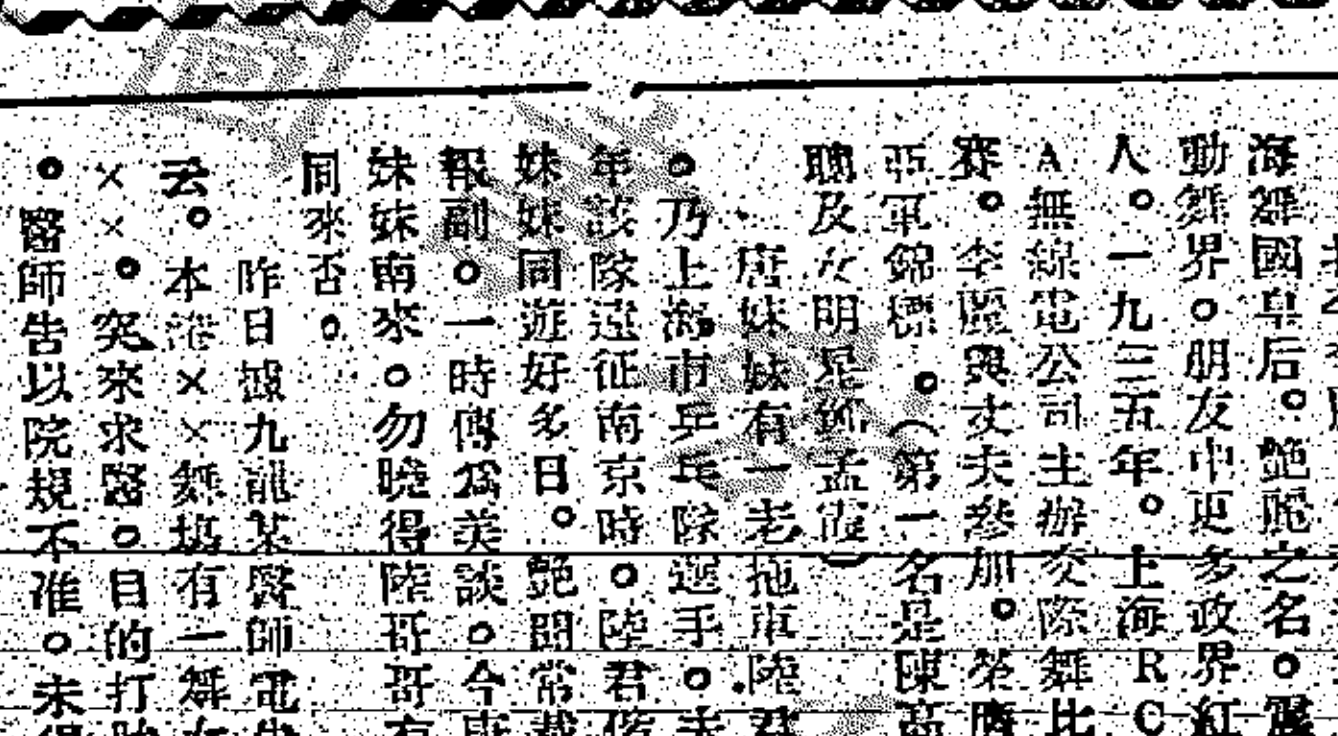 海舞國皇后。艷麗之名。
動舞界。朋友中更多政界紅
人。一九三五年。上海RC
A無線電公司主辦交際舞比
賽。李麗與丈夫參加。榮膺
亞軍錦標。（第一名是陳高
聰及女明星孟霞）
唐妹妹有一老拖車陸君
。乃上海市乒乓隊選手。
年該隊遠征南京時。陸君偕
妹妹同遊好多日。艷聞常載
報副。一時傳爲美談。今唐
妹妹南來。勿曉得陸哥哥有
同來否。
昨日據九龍某醫師電告
云。本港××舞塲有一舞女
××。突來求醫。目的打胎
。醫師告以院規不准。未得